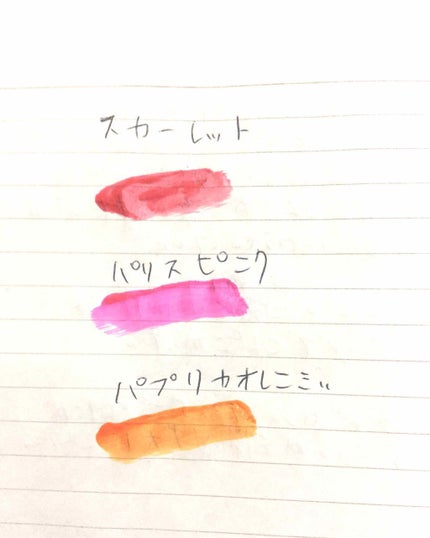 スカーレット
パリスピンク
パプリカオレンジ